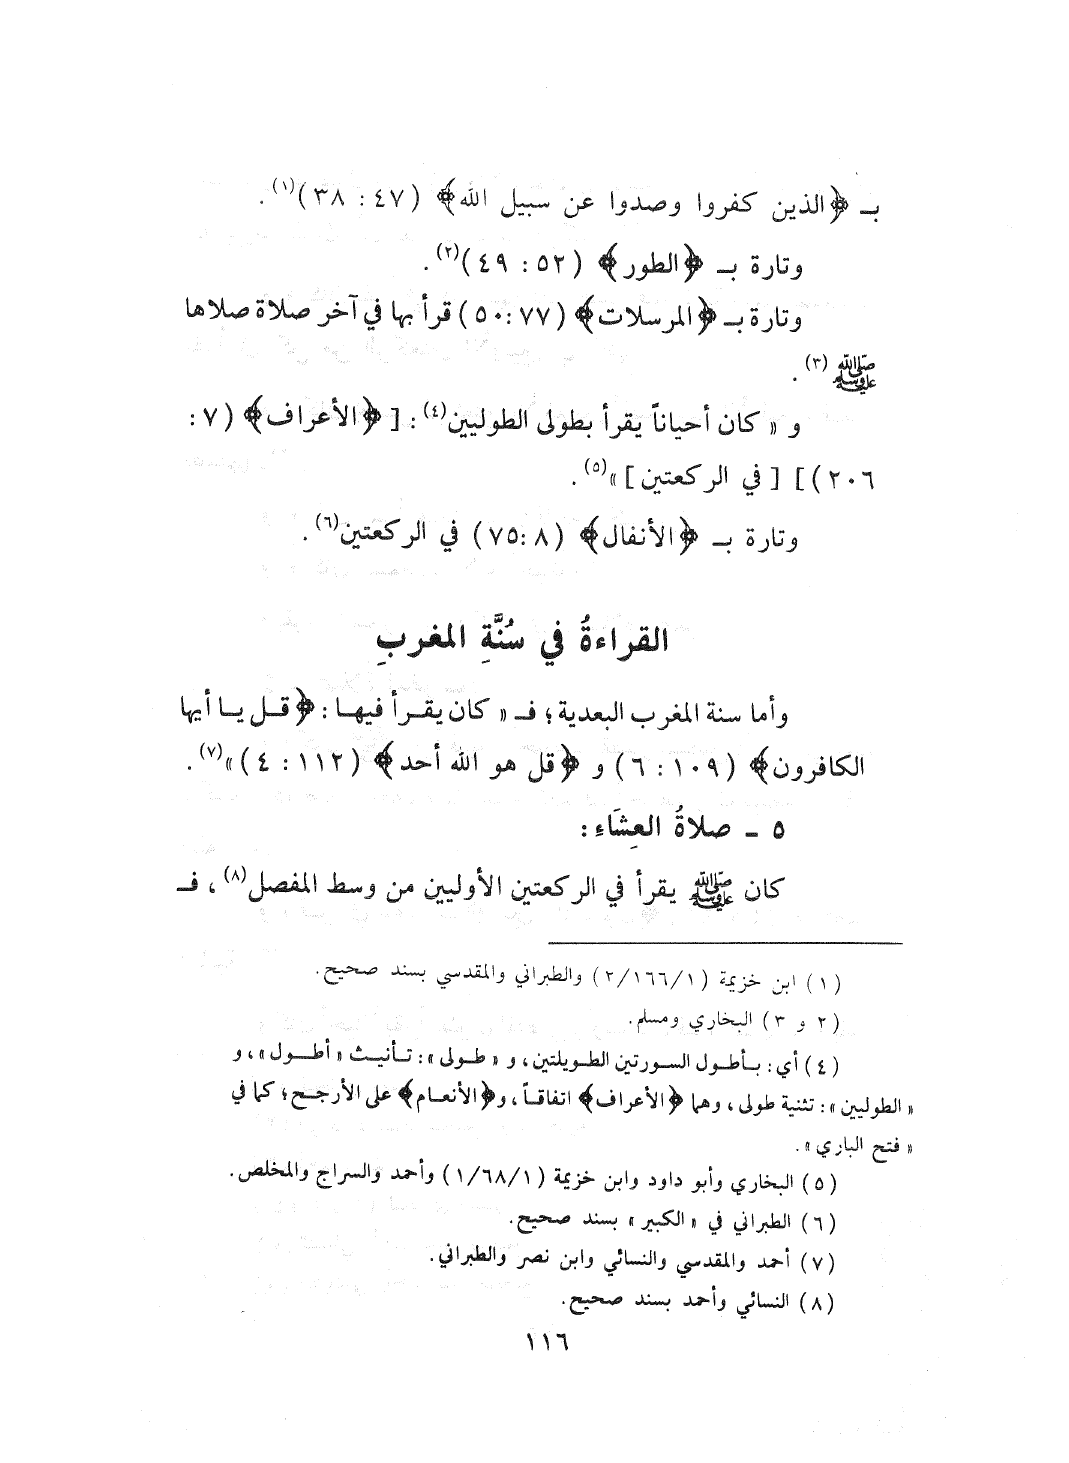 بـ ﴿الذين كفروا وصدوا عن سبيل الله﴾ (٤٧ : ٣٨)(١).
وتارة بـ ﴿الطور﴾ (٥٢ : ٤٩)(٢).
وتارة بـ ﴿المرسلات﴾ (٧٧: ٥٠) قرأ بها في آخر صلاة صلاها
ﷺ(٣).
و « كان أحياناً يقرأ بطولى الطوليين(٤): [ ﴿الأعراف﴾ (٧ :
٢٠٦)] [ في الركعتين ] »(٥).
وتارة بـ ﴿الأنفال﴾ (٨ :٧٥) في الركعتين(٦).
القراءةُ في سُنَّةِ المغربِ
وأما سنة المغرب البعدية؛ فـ « كان يقرأ فيها : ﴿قل يا أيها
الكافرون﴾ (١٠٩ : ٦) و ﴿قل هو الله أحد﴾ (١١٢ : ٤)»(٧).
٥ ـ صلاةُ العِشَاءِ :
كان ﷺ يقرأ في الركعتين الأوليين من وسط المفصل(٨)، فـ
(١) ابن خزيمة (١/١٦٦/٢) والطبراني والمقدسي بسند صحيح.
(٢ و ٣) البخاري ومسلم.
(٤) أي: بأطول السورتين الطويلتين، و « طولى »: تأنيث « أطول »، و
« الطوليين »: تثنية طولى، وهما ﴿الأعراف﴾ اتفاقاً، و﴿الأنعام﴾ على الأرجح؛ كما في
« فتح الباري ».
(٥) البخاري وأبو داود وابن خزيمة (١/٦٨/١) وأحمد والسراج والمخلص.
(٦) الطبراني في « الكبير » بسند صحيح.
(٧) أحمد والمقدسي والنسائي وابن نصر والطبراني.
(٨) النسائي وأحمد بسند صحيح.
١١٦